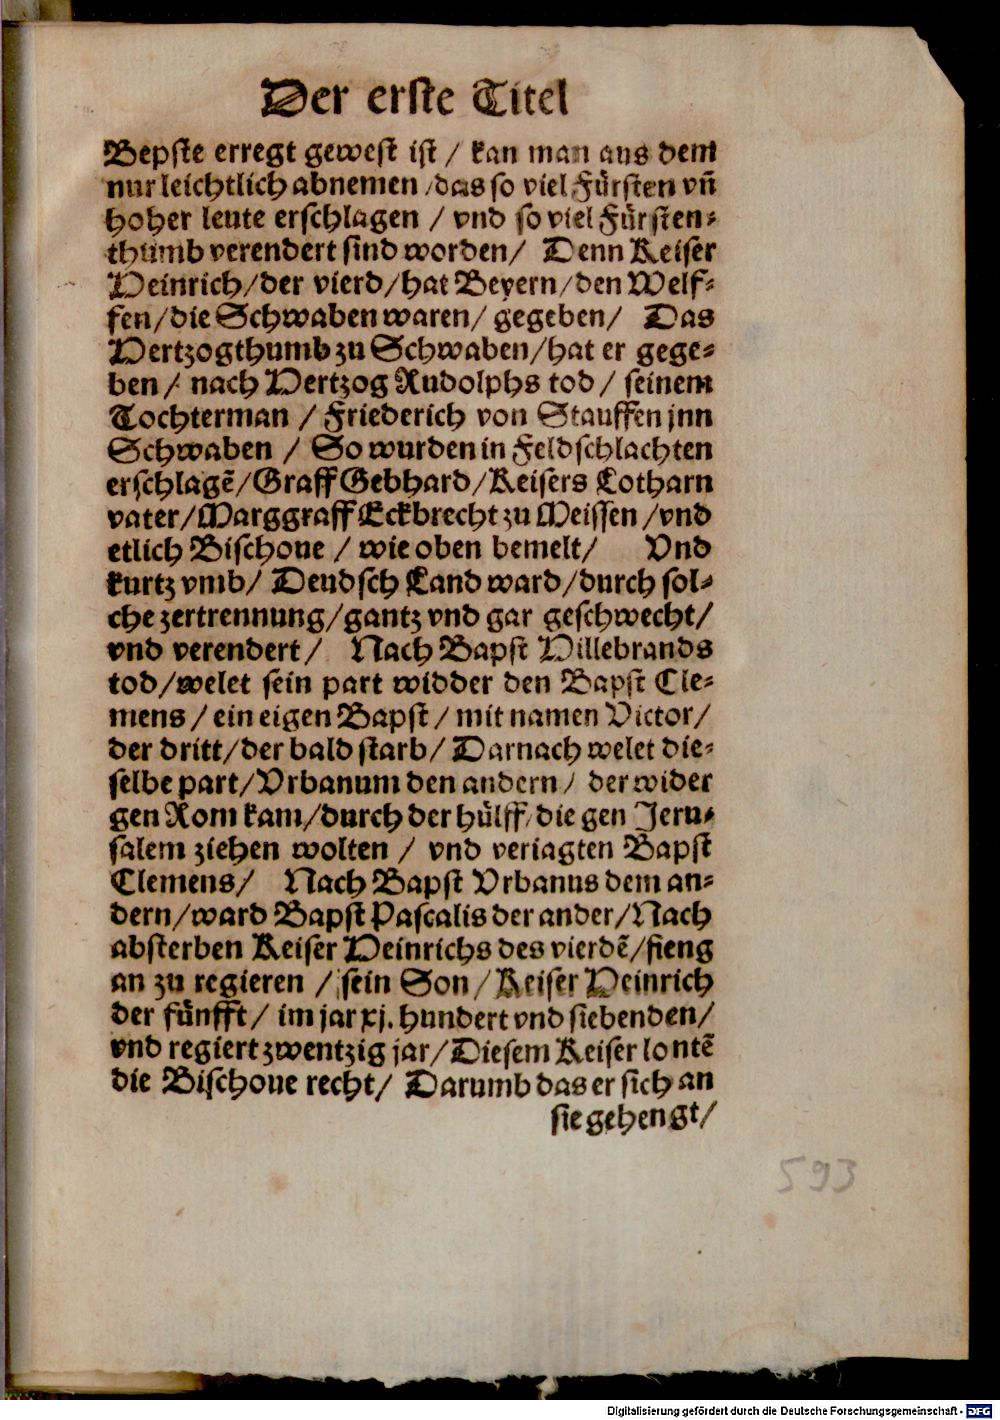 Der erste Titel
Bepste erregt gewest ist / kan man aus dem
nur leichtlich abnemen / das so viel Fürsten vñ
hoher leute erschlagen / vnd so viel Fürsten⸗
thumb verendert sind worden / Denn Keiser
Heinrich / der vierd / hat Beyern / den Welf⸗
fen / die Schwaben waren / gegeben / Das
Hertzogthumb zu Schwaben / hat er gege⸗
ben / nach Hertzog Rudolphs tod / seinem
Tochterman / Friederich von Stauffen jnn
Schwaben / So wurden in Feldschlachten
erschlagẽ / Graff Gebhard / Keisers Lotharn
vater / Marggraff Eckbrecht zu Meissen / vnd
etlich Bischoue / wie oben bemelt / Vnd
kurtz vmb / Deudsch Land ward / durch sol⸗
che zertrennung / gantz vnd gar geschwecht /
vnd verendert / Nach Bapst Hillebrands
tod / welet sein part widder den Bapst Cle⸗
mens / ein eigen Bapst / mit namen Victor /
der dritt / der bald starb / Darnach welet die⸗
selbe part / Vrbanum den andern / der wider
gen Rom kam / durch der hülff / die gen Jeru⸗
salem ziehen wolten / vnd veriagten Bapst
Clemens / Nach Bapst Vrbanus dem an⸗
dern / ward Bapst Pascalis der ander / Nach
absterben Keiser Heinrichs des vierdẽ / fieng
an zu regieren / sein Son / Keiser Heinrich
der fünfft / im jar xj. hundert vnd siebenden /
vnd regiert zwentzig jar / Diesem Keiser lontẽ
die Bischoue recht / Darumb das er sich an
sie gehengt /
593
Digitalisierung gefördert durch die Deutsche Forschungsgemeinschaft - DFG